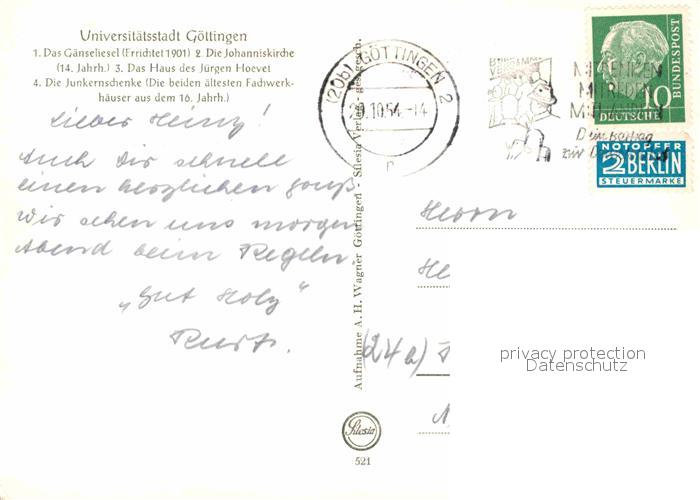 Universitätsstadt Göttingen
1. Das Gänseliesel (Errichtet 1901) 2. Die Johanniskirche
(14. Jahrh.) 3. Das Haus des Jürgen Hoevet
4. Die Junkernschenke (Die beiden ältesten Fachwerk-
häuser aus dem 16. Jahrh.)
Lieber Heinz!
Auch Dir schnell
einen herzlichen Gruß
Wir sehen uns morgen
Abend beim Kegeln.
"Gut Holz"
Kurt.
Aufnahme A. H. Wagner Göttingen - Silesia Verlag - ges. gesch.
Silesia
521
(20b) GÖTTINGEN 2
10.54.-14
MITDENKEN
MITREDEN
Dein Beitrag
10
DEUTSCHE
BUNDESPOST
NOTOPFER
2 BERLIN
STEUERMARKE
Herrn
He
(24a)
privacy protection
Datenschutz